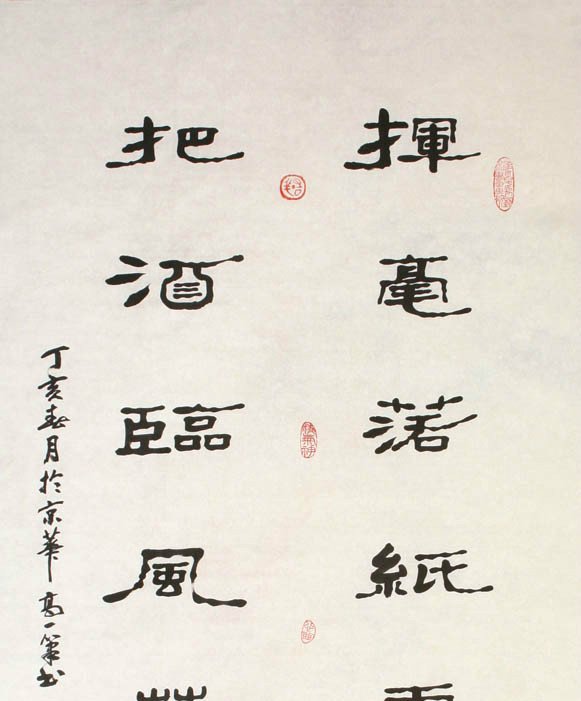 揮毫落紙
把酒臨風
丁亥春月於京華 高一筆书